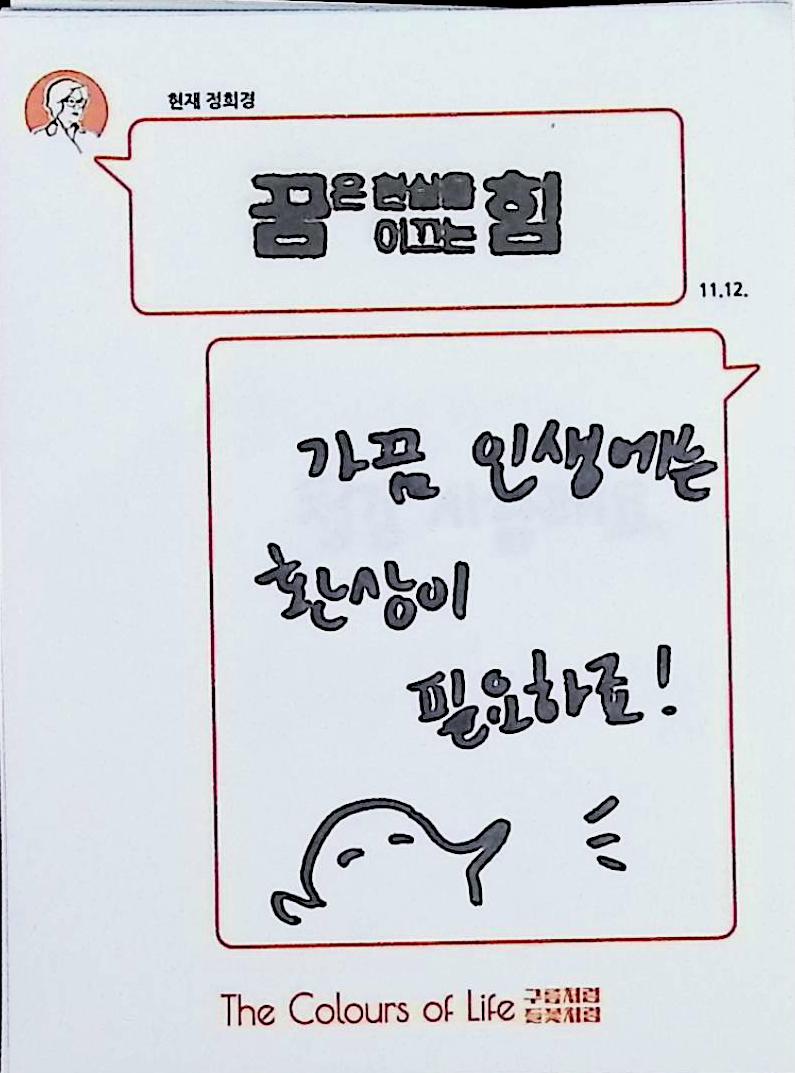 현재 정희경
꿈은 현실을
이끄는 힘
11.12.
가끔 인생에는
환상이
필요하죠!
The Colours of Life 구름처럼
들꽃처럼